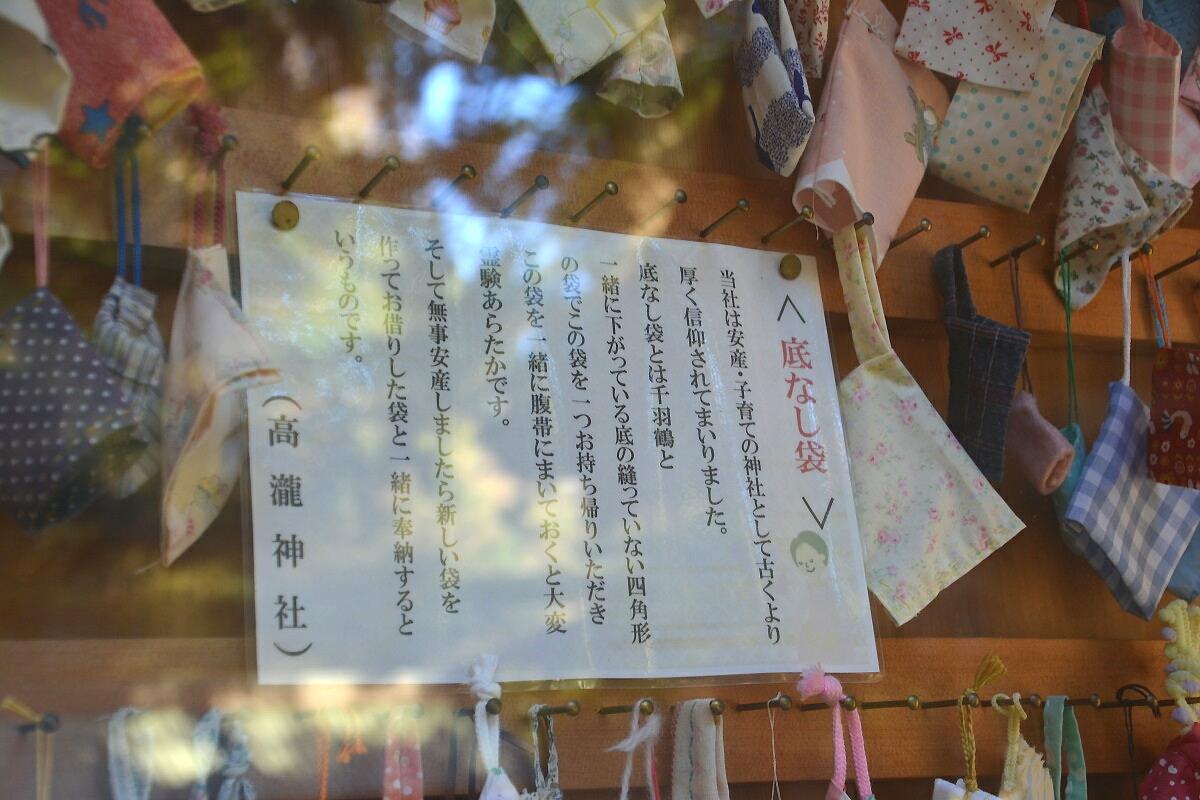 ＜底なし袋＞
当社は安産・子育ての神社として古くより
厚く信仰されてまいりました。
底なし袋とは千羽鶴と
一緒に下がっている底の縫っていない四角形
の袋でこの袋を一つお持ち帰りいただき
この袋を一緒に腹帯にまいておくと大変
霊験あらたかです。
そして無事安産しましたら新しい袋を
作ってお借りした袋と一緒に奉納すると
いうものです。
（高瀧神社）